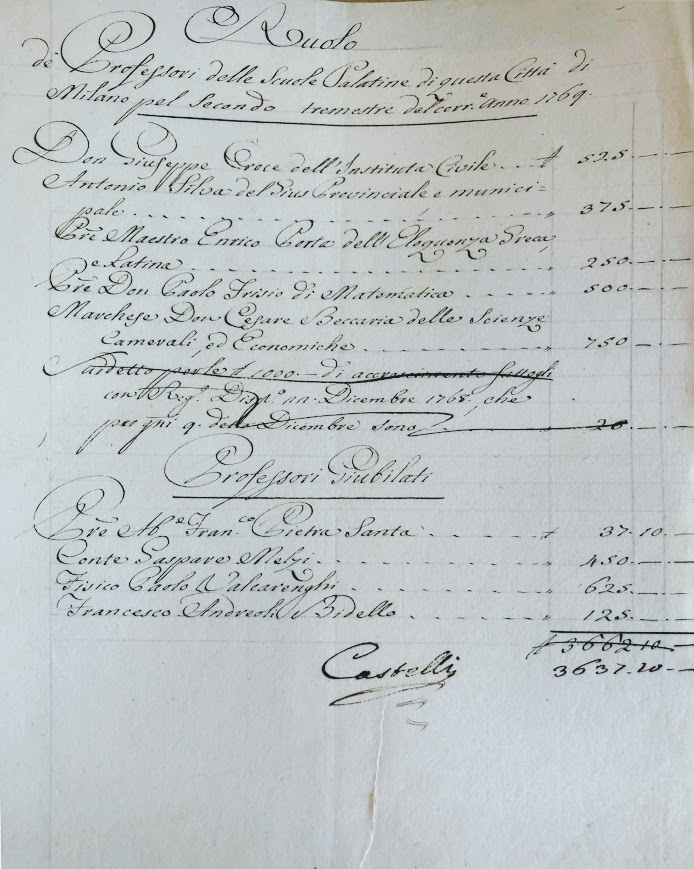 Ruolo
de Professori delle Scuole Palatine di questa Città di
Milano pel Secondo tremestre del corr.e anno 1769.
Don Giuseppe Croce dell'Instituta Civile . . . £ 525.——
Antonio Silva del Gius Provinciale e munici=
pale . . . . . . . . . . . . . . . . . . „ 375.——
Pre Maestro Enrico Porta dell'Eloquenza Greca,
e Latina . . . . . . . . . . . . . . . . „ 250.——
Pre Don Paolo Frisio di Matematica . . . . . „ 500.——
Marchese Don Cesare Beccaria delle Scienze
Camerali, ed Economiche . . . . . . . . . . „ 750.——
Suddetto per le £ 1000.— di accrescimento fattogli
con R.l Disp.o Dicembre 1768, che
per gni q. dello Dicembre sono „ 20.——
Professori Giubilati
Pre Ab.e Fran.co Pietra Santa . . . . . £ 37.10.—
Conte Gaspare Melzi . . . . . . . . . . „ 450.——
Fisico Paolo Valcarenghi . . . . . . . . „ 625.——
Francesco Andreoli Bidello . . . . . . . „ 125.——
£ 3662.10.—
Castelli 3637.10—